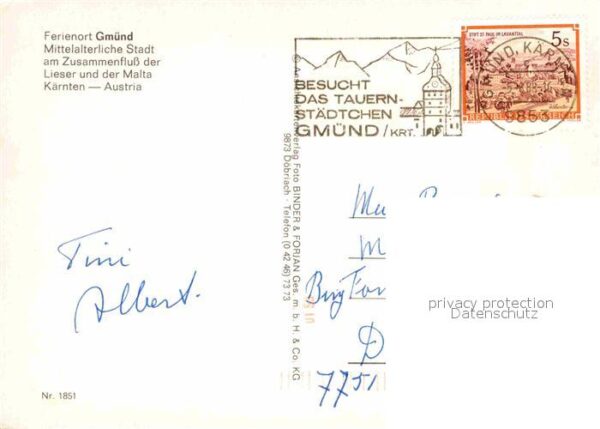 Ferienort Gmünd
Mittelalterliche Stadt
am Zusammenfluß der
Lieser und der Malta
Kärnten — Austria
BESUCHT
DAS TAUERN-
STÄDTCHEN
GMÜND/KRT.
STIFT ST. PAUL IM LAVANTTAL
5s
REPUBLIK ÖSTERREICH
GMÜND, KÄRNTEN
9853
© Ansichtskartenverlag Foto BINDER & FORJAN Ges. m. b. H. & Co. KG
9873 Döbriach - Telefon (0 42 46) 73 73
Tini
Albert.
M
D
7751
privacy protection
Datenschutz
Nr. 1851